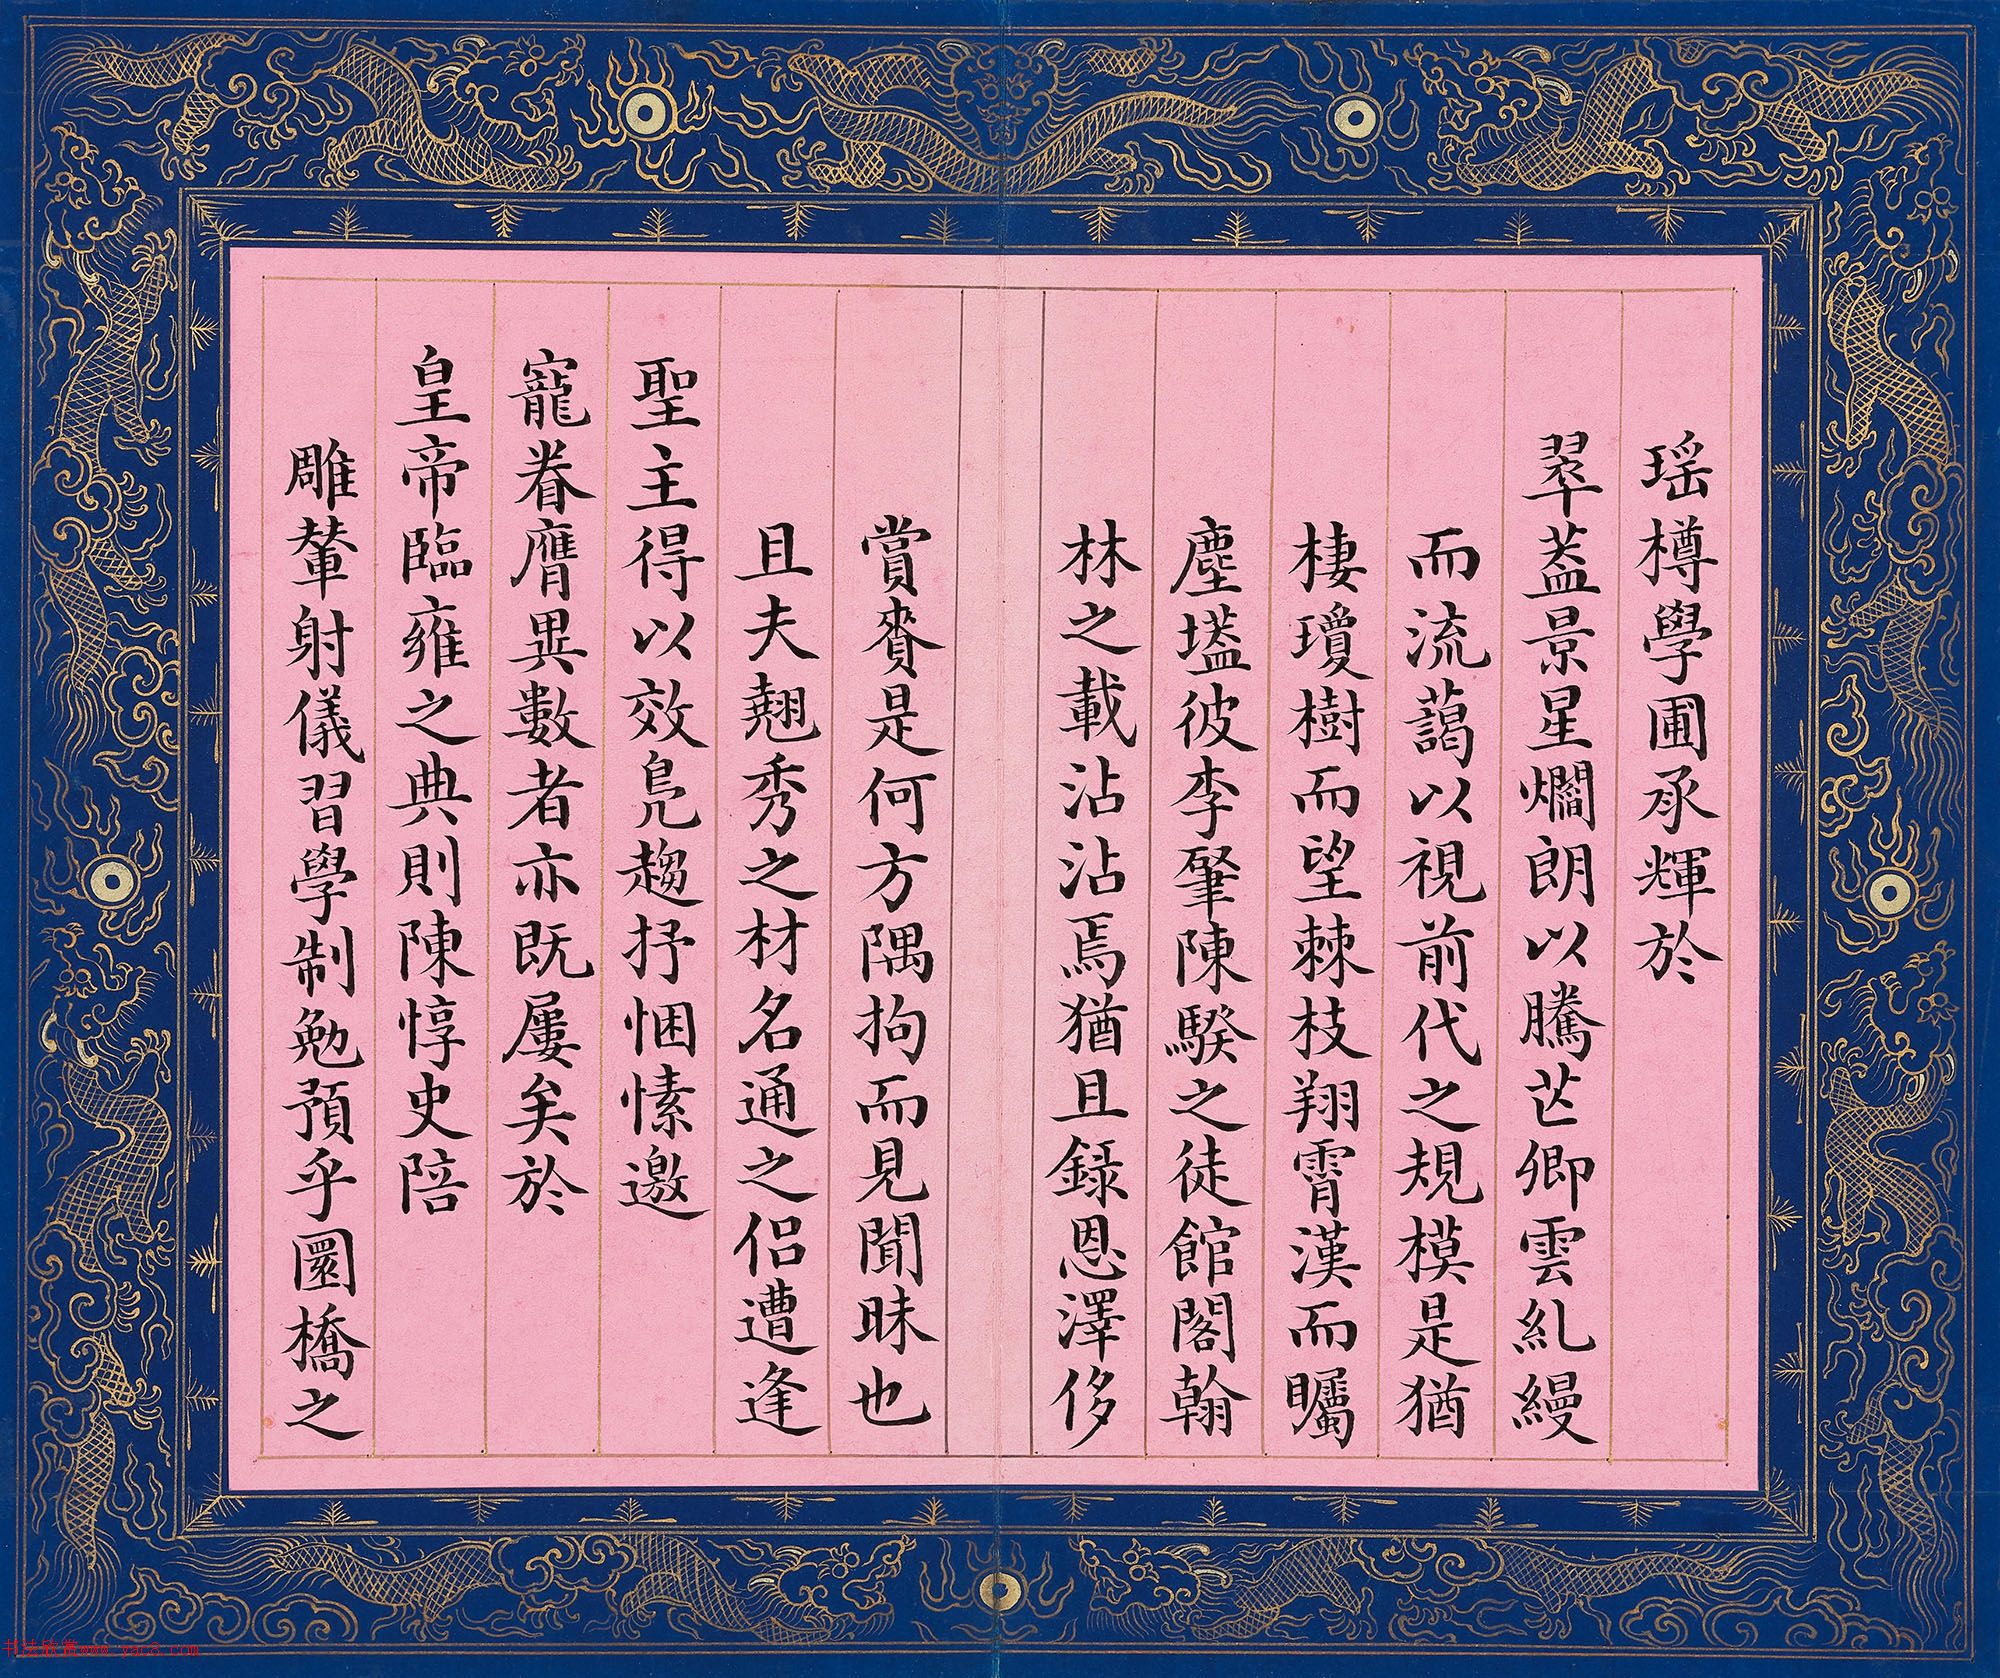 瑶樽學圃承輝於
翠葢景星爛朗以騰芒卿雲糺縵
而流藹以視前代之規模是猶
棲瓊樹而望棘枝翔霄漢而矚
塵壒彼李肇陳騤之徒館閣翰
林之載沾沾焉猶且録恩澤侈
賞賚是何方隅拘而見聞昧也
且夫翹秀之材名通之侣遭逢
聖主得以效鳧趨抒悃愫邀
寵眷膺異數者亦既屢矣於
皇帝臨雍之典則陳惇史陪
雕輦射儀習學制勉預乎圜橋之
书法欣赏www.yac8.com